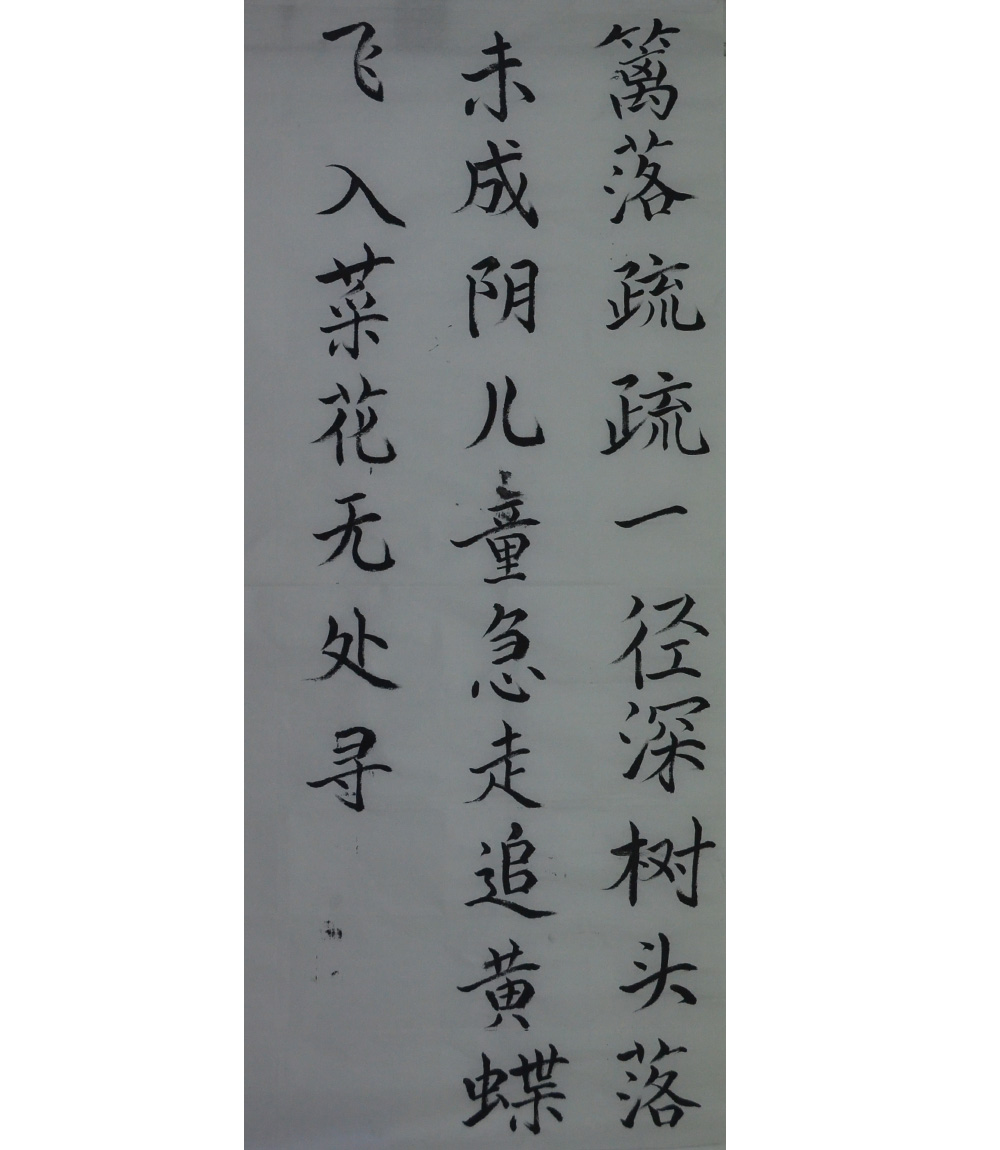 篱落疏疏一径深树头落
未成阴儿童急走追黄蝶
飞入菜花无处寻